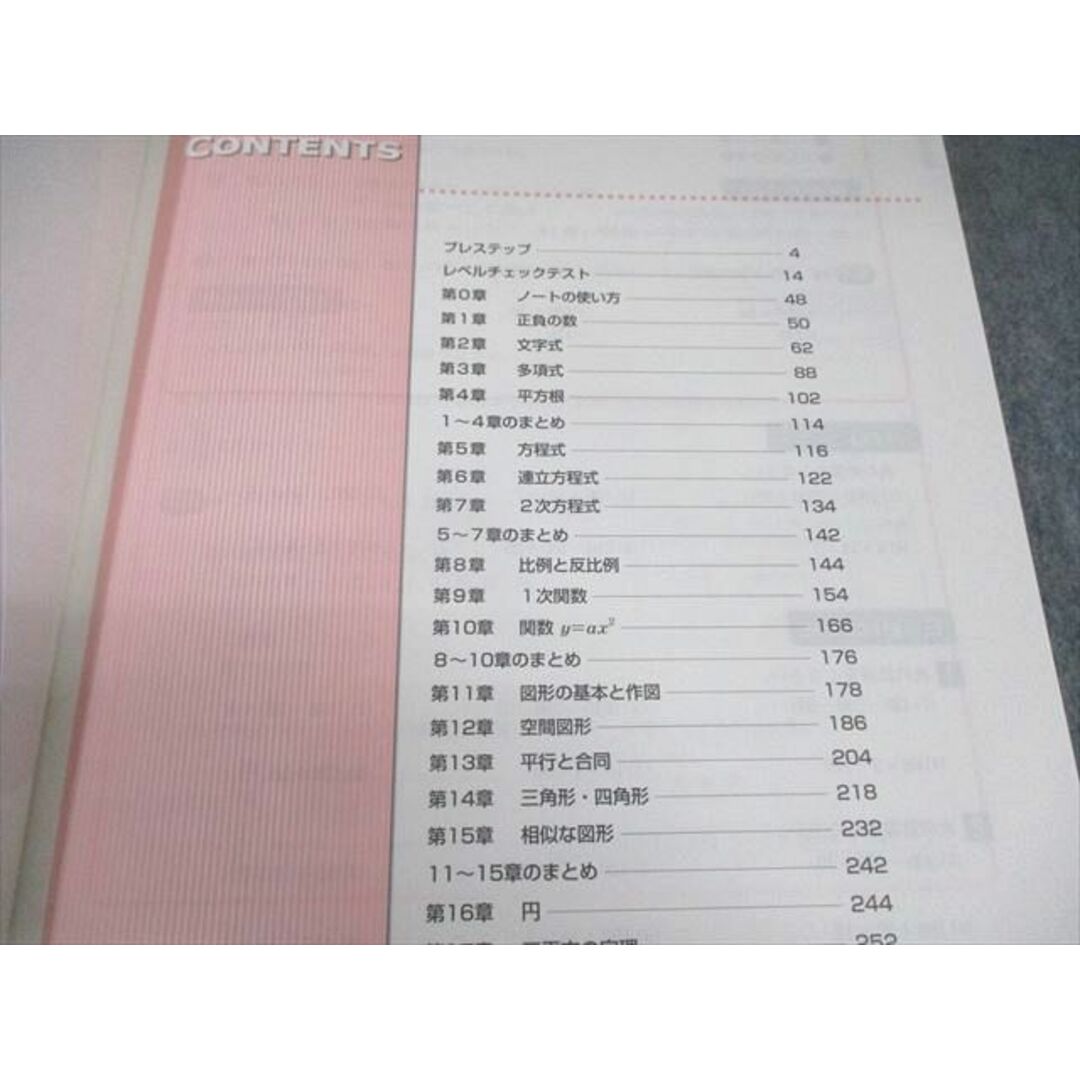 CONTENTS
プレステップ 4
レベルチェックテスト 14
第0章 ノートの使い方 48
第1章 正負の数 50
第2章 文字式 62
第3章 多項式 88
第4章 平方根 102
1〜4章のまとめ 114
第5章 方程式 116
第6章 連立方程式 122
第7章 2次方程式 134
5〜7章のまとめ 142
第8章 比例と反比例 144
第9章 1次関数 154
第10章 関数 y=ax² 166
8〜10章のまとめ 176
第11章 図形の基本と作図 178
第12章 空間図形 186
第13章 平行と合同 204
第14章 三角形・四角形 218
第15章 相似な図形 232
11〜15章のまとめ 242
第16章 円 244
252